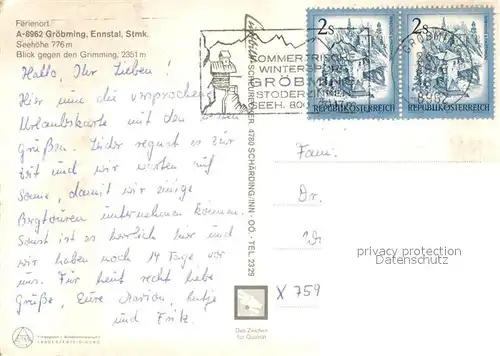 Ferienort
A-8962 Gröbming, Ennstal, Stmk.
Seehöhe 776 m
Blick gegen den Grimming, 2351 m
Hallo, Ihr Lieben!
Hier nun die versprochene
Urlaubskarte mit den
Grüßen. Leider regnet es zur
Zeit und wir warten auf
Sonne, damit wir einige
Bergtouren unternehmen können.
Sonst ist es herrlich hier und
wir haben noch 14 Tage vor
uns. Für heut recht liebe
Grüße, Eure Marion,
und Fritz.
SOMMERFRISCHE
WINTERS
GRÖBMING
STODERZINKEN
SEEH. 800
4780 SCHÄRDING/INN · OÖ. · TEL. 2329
2s
REPUBLIK ÖSTERREICH
2s
REPUBLIK ÖSTERREICH
GRÖBMING
Fam.
Dr.
privacy protection
Datenschutz
X 759
Das Zeichen
für Qualität